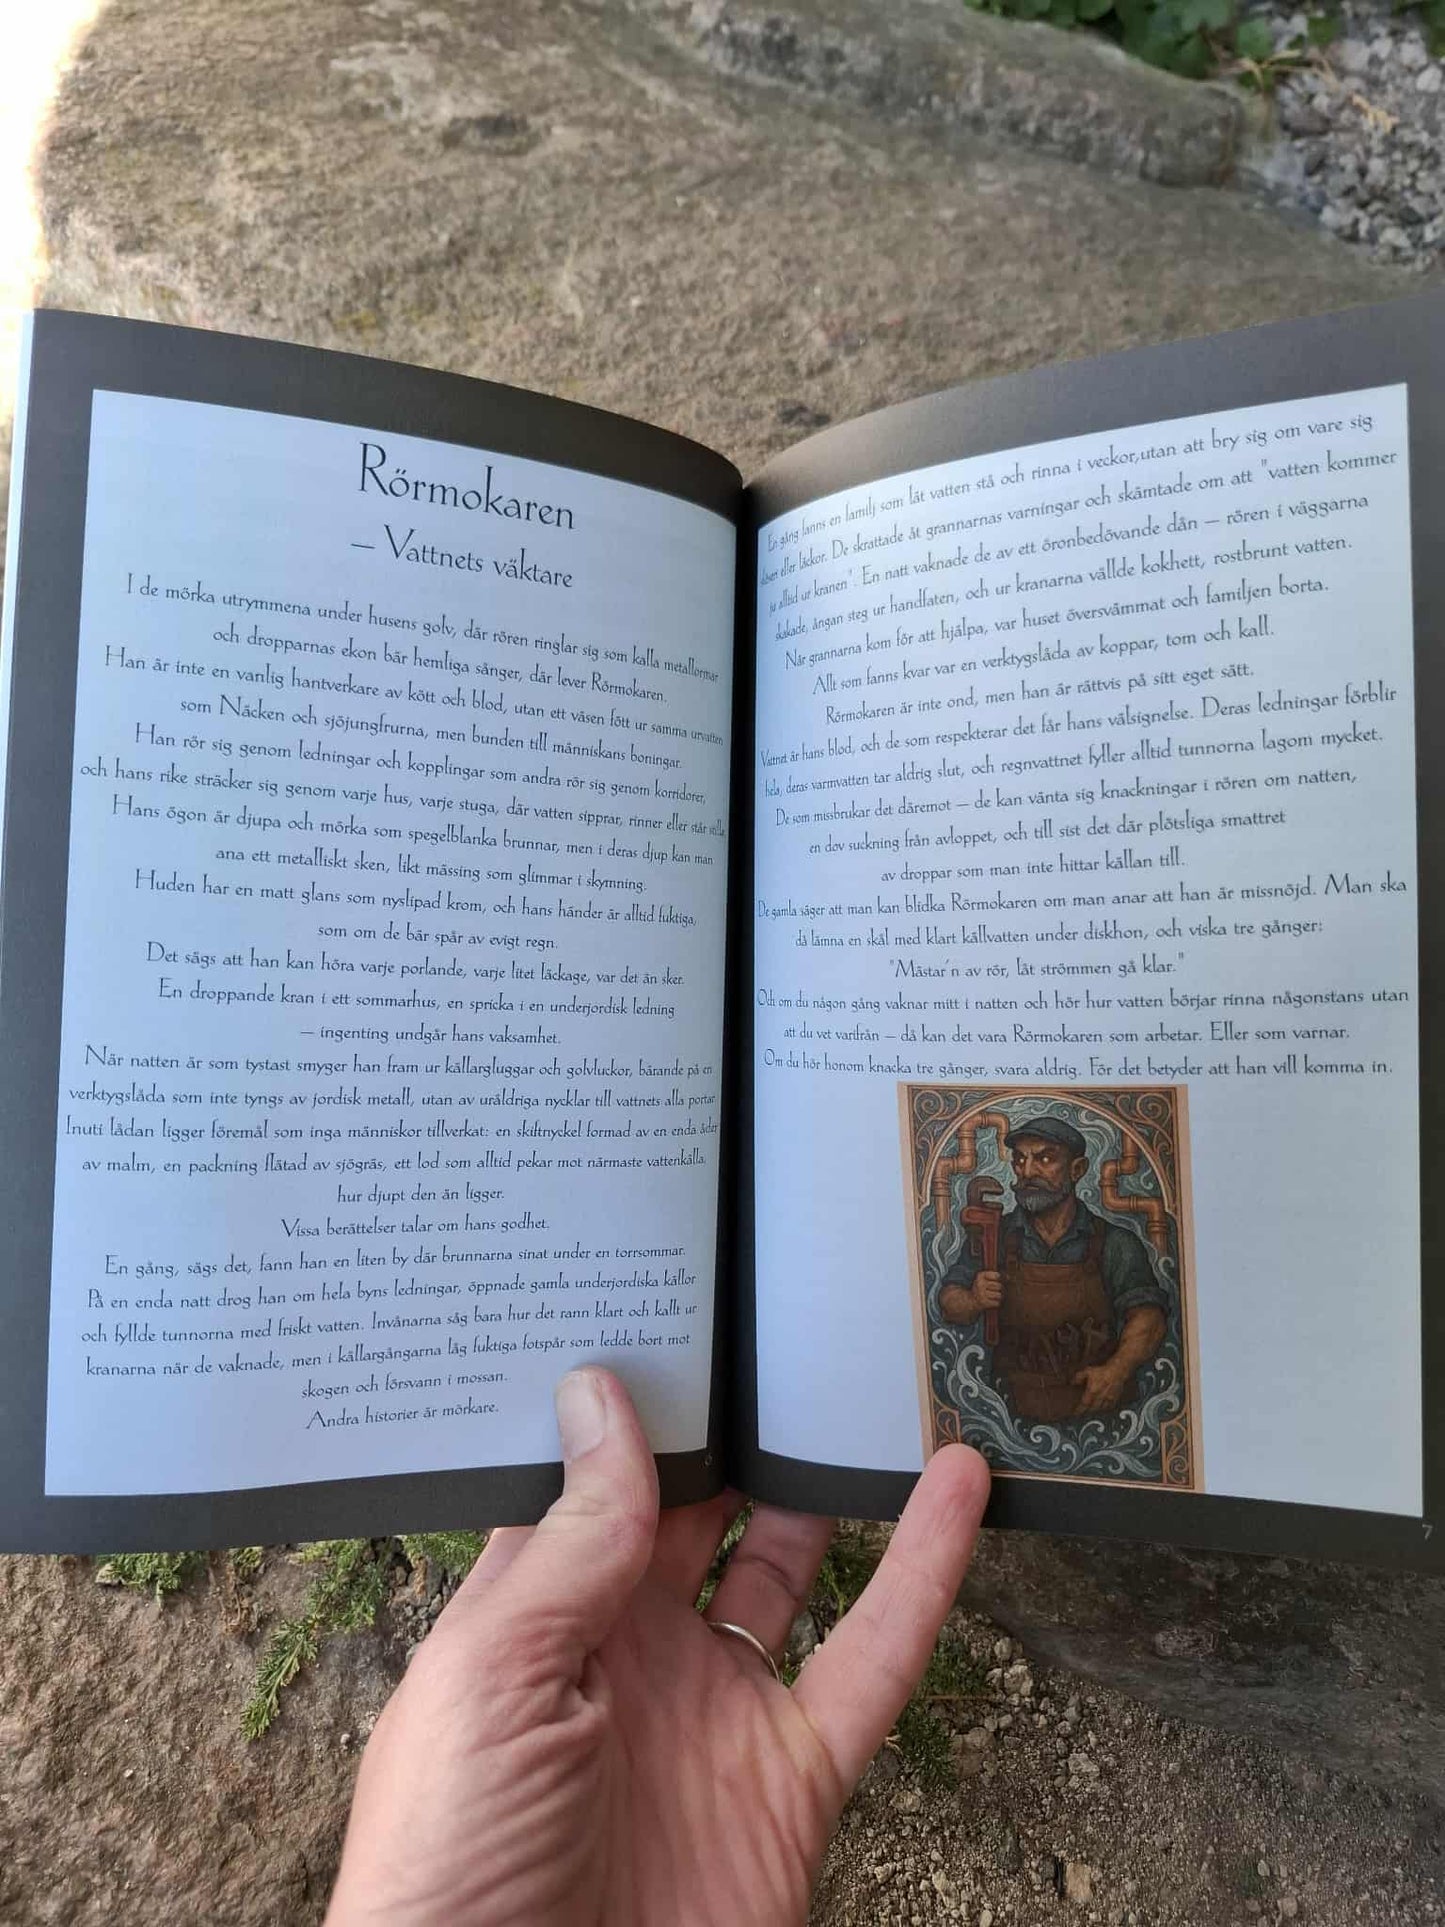 Rörmokaren
– Vattnets väktare
I de mörka utrymmena under husens golv, där rören ringlar sig som kalla metallormar
och dropparnas ekon bär hemliga sånger, där lever Rörmokaren.
Han är inte en vanlig hantverkare av kött och blod, utan ett väsen fött ur samma urvatten
som Näcken och sjöjungfrurna, men bunden till människans boningar.
Han rör sig genom ledningar och kopplingar som andra rör sig genom korridorer,
och hans rike sträcker sig genom varje hus, varje stuga, där vatten sipprar, rinner eller står stilla.
Hans ögon är djupa och mörka som spegelblanka brunnar, men i deras djup kan man
ana ett metalliskt sken, likt mässing som glimmar i skymning.
Huden har en matt glans som nyslipad krom, och hans händer är alltid fuktiga,
som om de bär spår av evigt regn.
Det sägs att han kan höra varje porlande, varje litet läckage, var det än sker.
En droppande kran i ett sommarhus, en spricka i en underjordisk ledning
– ingenting undgår hans vaksamhet.
När natten är som tystast smyger han fram ur källargluggar och golvluckor, bärande på en
verktygslåda som inte tyngs av jordisk metall, utan av uråldriga nycklar till vattnets alla portar
Inuti lådan ligger föremål som inga människor tillverkat: en skiftnyckel formad av en enda åder
av malm, en packning flätad av sjögräs, ett lod som alltid pekar mot närmaste vattenkälla,
hur djupt den än ligger.
Vissa berättelser talar om hans godhet.
En gång, sägs det, fann han en liten by där brunnarna sinat under en torrsommar.
På en enda natt drog han om hela byns ledningar, öppnade gamla underjordiska källor
och fyllde tunnorna med friskt vatten. Invånarna såg bara hur det rann klart och kallt ur
kranarna när de vaknade, men i källargångarna låg fuktiga fotspår som ledde bort mot
skogen och försvann i mossan.
Andra historier är mörkare.
6
En gång fanns en familj som lät vatten stå och rinna i veckor,utan att bry sig om vare sig
slöseri eller läckor. De skrattade åt grannarnas varningar och skämtade om att "vatten kommer
ju alltid ur kranen". En natt vaknade de av ett öronbedövande dån – rören i väggarna
skakade, ångan steg ur handfaten, och ur kranarna vällde kokhett, rostbrunt vatten.
När grannarna kom för att hjälpa, var huset översvämmat och familjen borta.
Allt som fanns kvar var en verktygslåda av koppar, tom och kall.
Rörmokaren är inte ond, men han är rättvis på sitt eget sätt.
Vattnet är hans blod, och de som respekterar det får hans välsignelse. Deras ledningar förblir
hela, deras varmvatten tar aldrig slut, och regnvattnet fyller alltid tunnorna lagom mycket.
De som missbrukar det däremot – de kan vänta sig knackningar i rören om natten,
en dov suckning från avloppet, och till sist det där plötsliga smattret
av droppar som man inte hittar källan till.
De gamla säger att man kan blidka Rörmokaren om man anar att han är missnöjd. Man ska
då lämna en skål med klart källvatten under diskhon, och viska tre gånger:
"Mästar´n av rör, låt strömmen gå klar."
Och om du någon gång vaknar mitt i natten och hör hur vatten börjar rinna någonstans utan
att du vet varifrån – då kan det vara Rörmokaren som arbetar. Eller som varnar.
Om du hör honom knacka tre gånger, svara aldrig. För det betyder att han vill komma in.
7